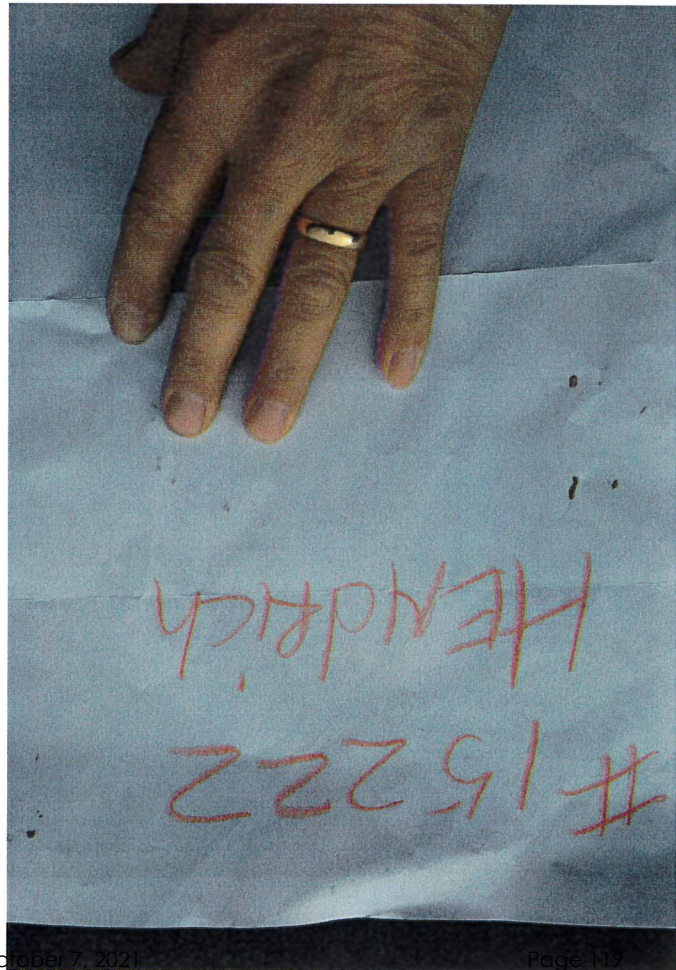 #15222
HENdRich
ctober 7, 2021 Page 119